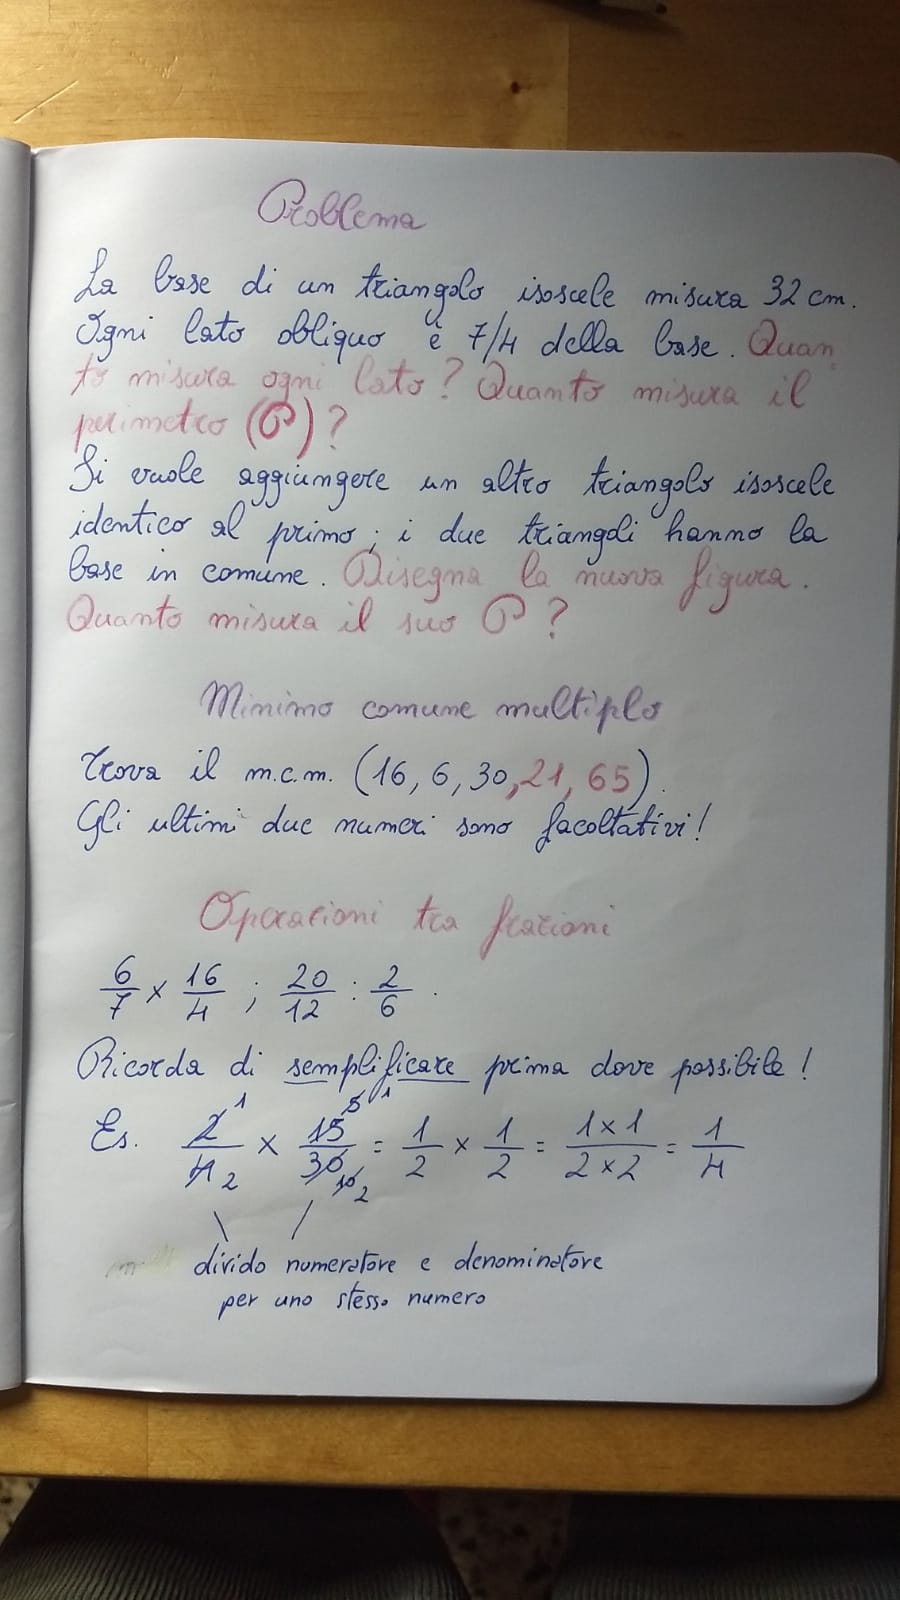 Problema
La base di un triangolo isoscele misura 32 cm.
Ogni lato obliquo è 7/4 della base. Quan
to misura ogni lato? Quanto misura il
perimetro (P)?
Si vuole aggiungere un altro triangolo isoscele
identico al primo; i due triangoli hanno la
base in comune. Disegna la nuova figura.
Quanto misura il suo P?
Minimo comune multiplo
Trova il m.c.m. (16, 6, 30, 21, 65).
Gli ultimi due numeri sono facoltativi!
Operazioni tra frazioni
6/7 × 16/4 ; 20/12 : 2/6 .
Ricorda di semplificare prima dove possibile!
Es. 2/4 × 15/30 = 1/2 × 1/2 = 1×1/2×2 = 1/4
1 5 1
2 10 2
divido numeratore e denominatore
per uno stesso numero